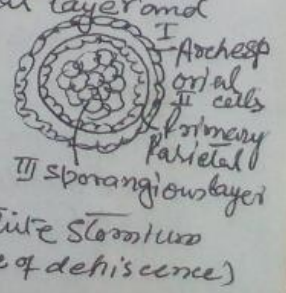 layer and
I
Archesp
orial
II cells
Primary
Parietal
III sporangious layer
Stomium
of dehiscence)